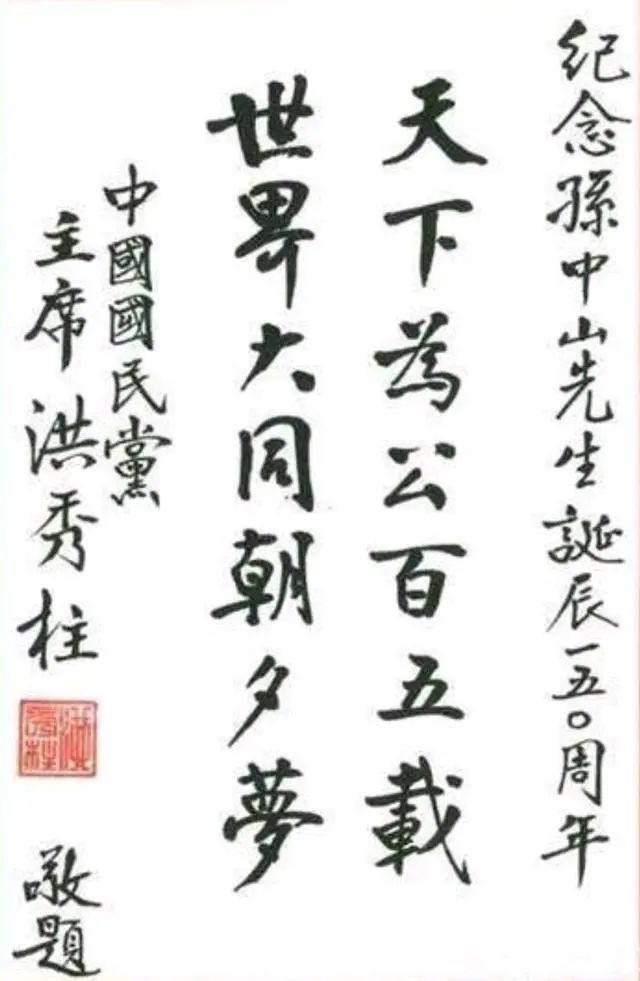 紀念孫中山先生誕辰一五〇周年
天下為公百五載
世界大同朝夕夢
中國國民黨
主席洪秀柱
洪秀柱
敬題